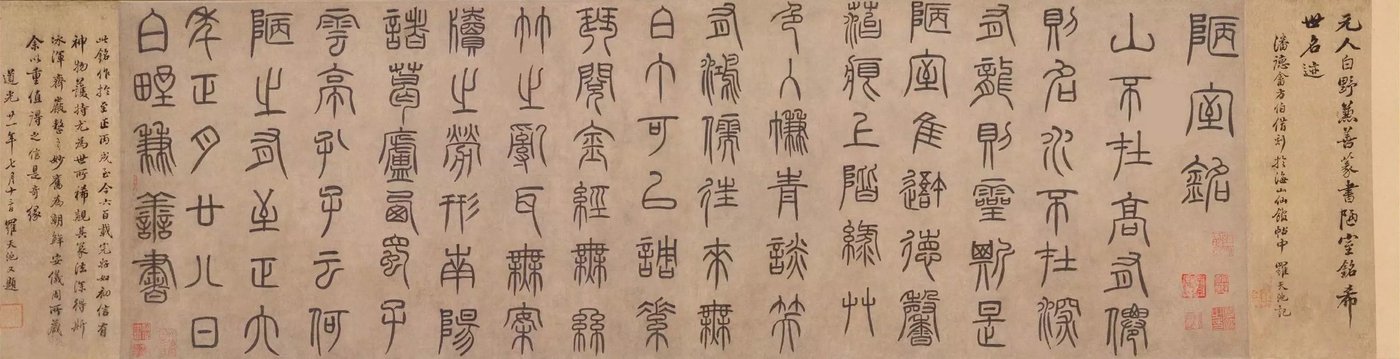 元人白野兼善篆書陋室銘希
世名迹
潘德畬方伯借刻於海山仙館帖中 羅天池記
陋室銘
山不在高有僊
則名水不在深
有龍則靈斯是
陋室惟吾德馨
菭痕上階綠艸
色入簾青談笑
有鴻儒往來無
白丁可以調素
琴閱金經無絲
竹之亂耳無案
牘之勞形南陽
諸葛廬西蜀子
雲亭孔子云何
陋之有至正六
年正月廿八日
白野兼善書
此銘作於至正丙戌至今六百載完好如初信有
神物護持尤為世所稀覯其篆法深得斯
冰渾齊嚴整之妙舊為朝鮮安儀周所藏
余以重值得之信是奇緣
道光廿一年七月十三日羅天池又題